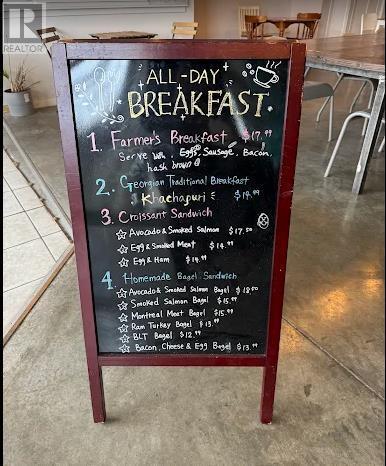 REALTOR
ALL-DAY
BREAKFAST
1. Farmer's Breakfast $17.99
Serve with Eggs, Sausage, Bacon,
hash brown
2. Georgian Traditional Breakfast
Khachapuri $19.99
3. Croissant Sandwich
Avocado & Smoked Salmon $17.50
Egg & Smoked Meat $14.99
Egg & Ham $14.99
4. Homemade Bagel Sandwich
Avocado & Smoked Salmon Bagel $18.50
Smoked Salmon Bagel $15.99
Montreal Meat Bagel $15.99
Ram Turkey Bagel $13.99
BLT Bagel $12.99
Bacon, Cheese & Egg Bagel $13.99